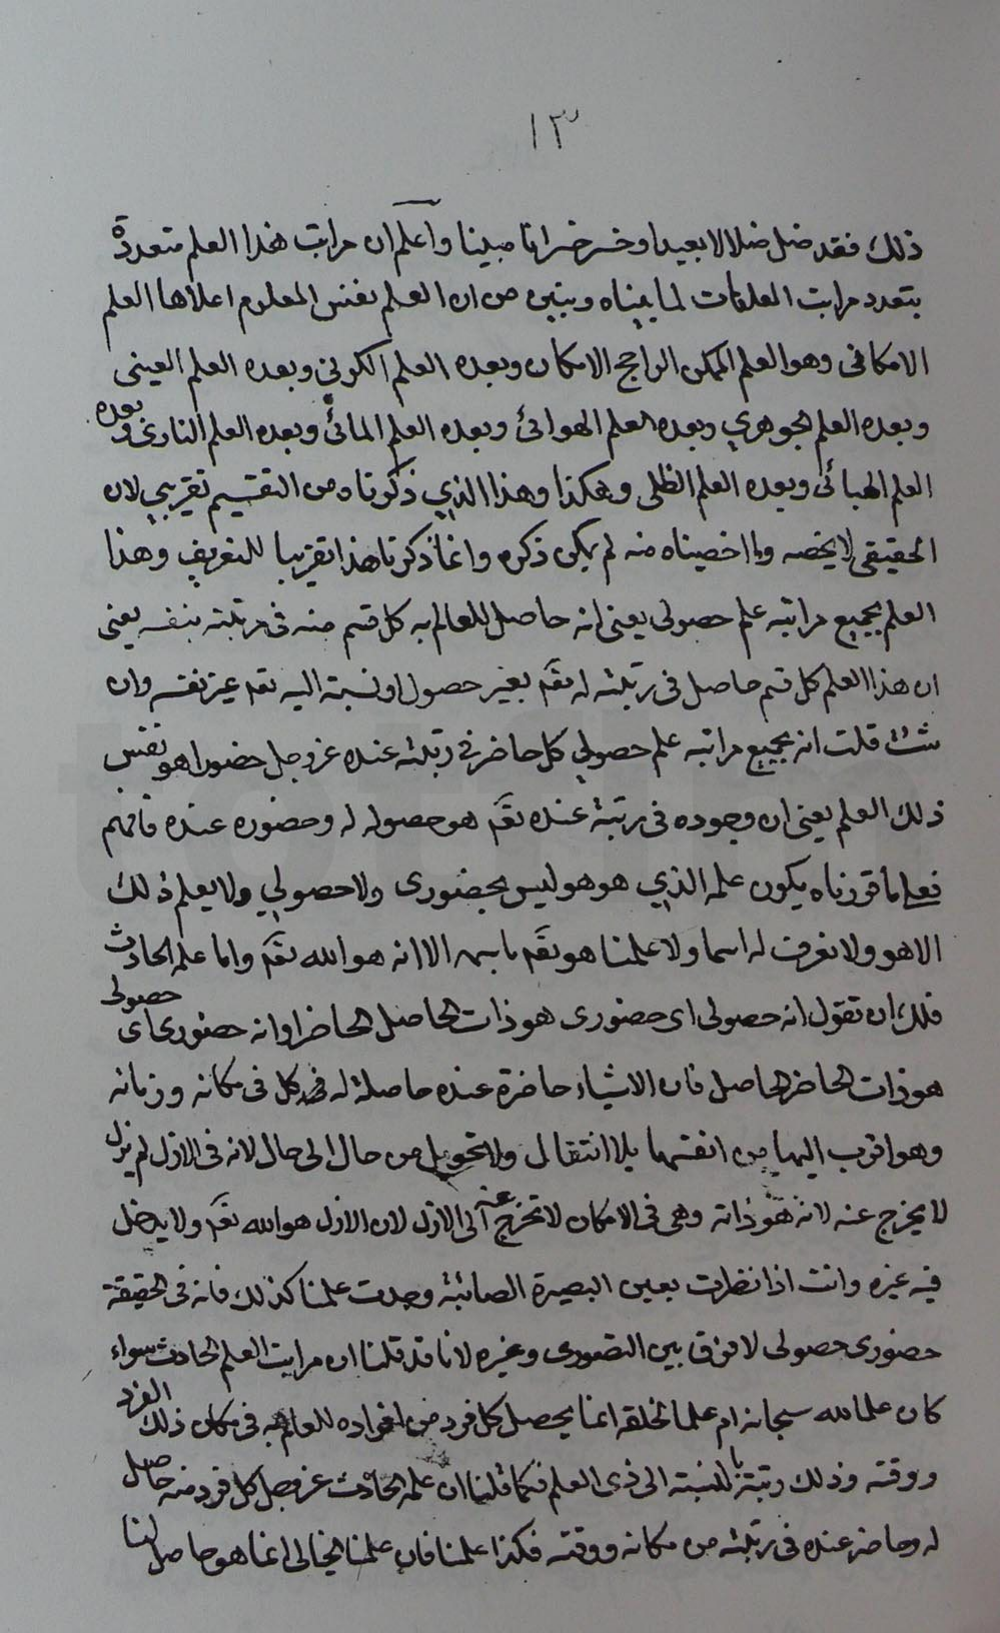 ١٣
ذلك فقد ضل ضلالا بعيدا وخسر خسرانا مبينا واعلم ان مراتب هذا العلم متعددة
بتعدد مراتب المعلومات لما بيناه ونبين من ان العلم نفس المعلوم اعلاها العلم
الامكاني وهو العلم الممكن الراجح الامكان وبعده العلم الكوني وبعده العلم العيني
وبعده العلم الجوهري وبعده العلم الهوائي وبعده العلم المائي وبعده العلم الناري وبعده
العلم الهبائي وبعده العلم الظلي وهكذا وهذا الذي ذكرناه من التقسيم تقريبي لان
الحقيقي لا يحصه وما احصيناه منه لم يكن ذكره وانما ذكرنا هذا تقريبا للتعريف وهذا
العلم بجميع مراتبه علم حصولي يعني انه حاصل للعالم به كل قسم منه في مرتبته بنفسه يعني
ان هذا العلم كل قسم حاصل في رتبته له تعم بغير حصول او نسبة اليه تعم غير نفسه وان
شئت قلت انه بجميع مراتبه علم حصولي كل حاضر في رتبته عنده عز وجل حضورا هو نفس
ذلك العلم يعني ان وجوده في رتبة عنده تعم هو حصوله له وحضوره عنده فافهم
فعلى ما قررناه يكون علمه الذي هو هو ليس بحضوري ولا حصولي ولا يعلم ذلك
الا هو ولا نعرف له اسما ولا علمنا هو تعم باسم الا انه هو الله تعم واما علمه الحادث
فلك ان تقول انه حصولي اى حضوري هو ذات الحاصل الحاضر او انه حضوري اى حصولي
هو ذات الحاضر الحاصل فان الاشياء حاضرة عنده حاصلة له كل في مكانه وزمانه
وهو اقرب اليها من انفسها بلا انتقال ولا تحويل من حال الى حال لانه في الازل لم يزل
لا يخرج عنه لانه هو ذاته وهي في الامكان لا تخرج عنه الى الازل لان الازل هو الله تعم ولا يدخل
فيه غيره وانت اذا نظرت بعين البصيرة الصائبة وجدت علمنا كذلك فانه في الحقيقة
حضوري حصولي لا فرق بين التصوري وغيره لانا قد قلنا ان مراتب العلم الحادث سواء
كان علما لله سبحانه ام علما لخلقه انما يحصل كل فرد من افراده للعالم به في مكان ذلك الفرد
ووقته وذلك رتبة بالنسبة الى ذي العلم فكما قلنا ان علمه الحادث عز وجل كل فرد منه حاصل
له وحاضر عنده في رتبته من مكانه ووقته فكذا علمنا فان علمنا الخيالي انما هو حاصل لنا